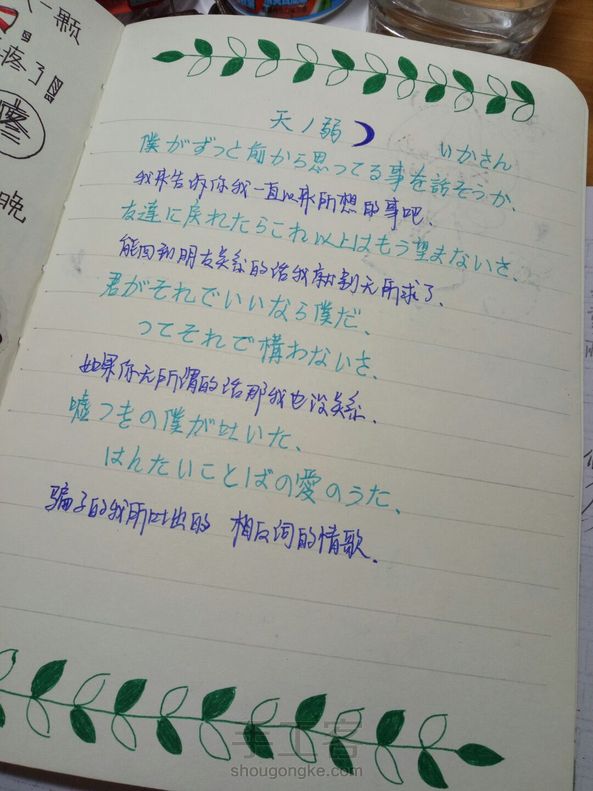 一颗
疼了
疼
晚
天ノ弱
いかさん
僕がずっと前から思ってる事を話そうか、
我来告诉你我一直以来所想的事吧、
友達に戻れたらこれ以上はもう望まないさ、
能回到朋友关系的话我就别无所求了、
君がそれでいいなら僕だ、
ってそれで構わないさ、
如果你无所谓的话那我也没关系、
嘘つきの僕が吐いた、
はんたいことばの愛のうた、
骗子的我所吐出的 相反词的情歌、
手工客
shougongke.com